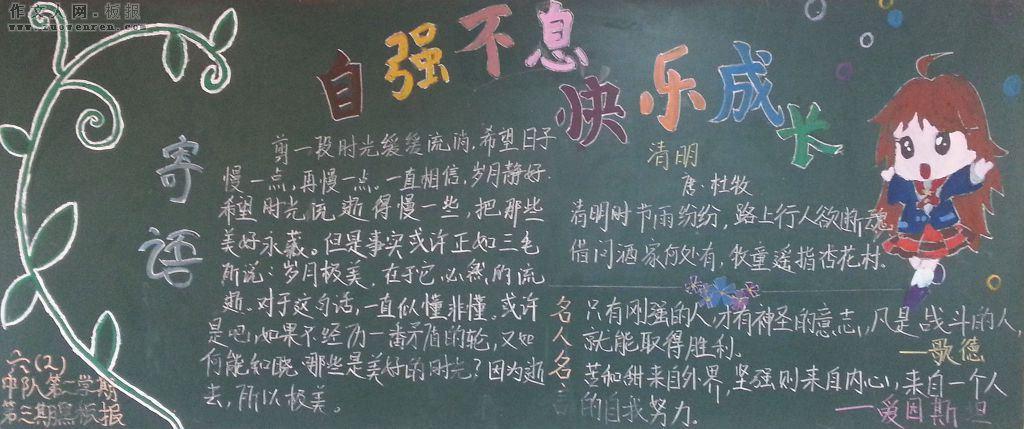 作文人网.板报
www.zuowenren.com
自强不息
快乐成长
寄语
剪一段时光缓缓流淌,希望日子
慢一点,再慢一点。一直相信,岁月静好.
希望时光流逝得慢一些,把那些
美好永藏。但是事实或许正如三毛
所说:岁月极美,在于它必然的流
逝.对于这句话,一直似懂非懂.或许
是吧,如果不经历一番矛盾的轮,又如
何能知晓.哪些是美好的时光?因为逝
去,所以极美。
六(2)
中队第二学期
第三期黑板报
清明
唐·杜牧
清明时节雨纷纷,路上行人欲断魂
借问酒家何处有,牧童遥指杏花村.
名人名言
只有刚强的人,才有神圣的意志,凡是战斗的人,
就能取得胜利.
—歌德
苦和甜来自外界,坚强则来自内心,来自一个人
的自我努力.
—爱因斯坦